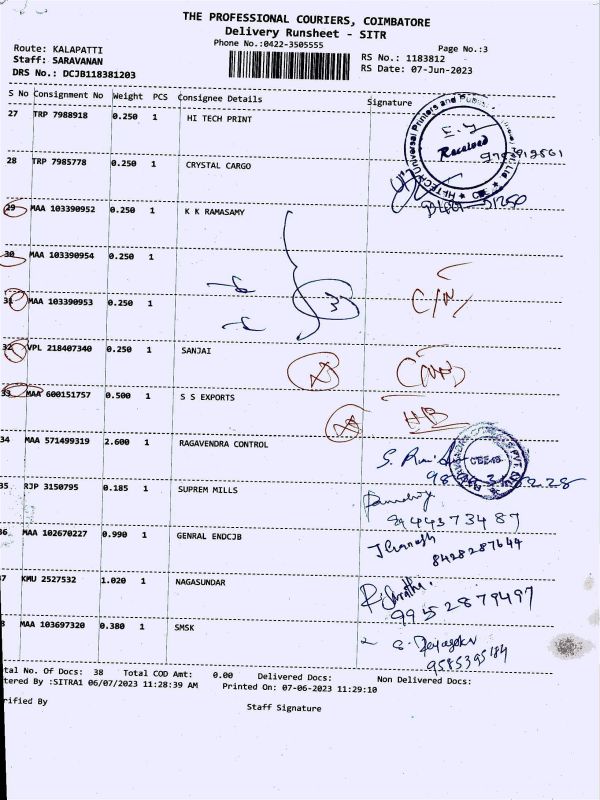 THE PROFESSIONAL COURIERS, COIMBATORE
Delivery Runsheet - SITR
Phone No.:0422-3505555
Page No.:3
Route: KALAPATTI
Staff: SARAVANAN
DRS No.: DCJB118381203
RS No.: 1183812
RS Date: 07-Jun-2023
S No Consignment No Weight PCS Consignee Details Signature
27 TRP 7988918 0.250 1 HI TECH PRINT
Received
28 TRP 7985778 0.250 1 CRYSTAL CARGO
29 MAA 103390952 0.250 1 K K RAMASAMY
30 MAA 103390954 0.250 1
31 MAA 103390953 0.250 1
32 VPL 218407340 0.250 1 SANJAI
33 MAA 600151757 0.500 1 S S EXPORTS
34 MAA 571499319 2.600 1 RAGAVENDRA CONTROL
35 RJP 3150795 0.185 1 SUPREM MILLS
9444373487
36 MAA 102670227 0.990 1 GENRAL ENDCJB
8428287644
7 KMU 2527532 1.020 1 NAGASUNDAR
9952879497
8 MAA 103697320 0.380 1 SMSK
9585395184
tal No. Of Docs: 38 Total COD Amt: 0.00 Delivered Docs: Non Delivered Docs:
tered By :SITRA1 06/07/2023 11:28:39 AM Printed On: 07-06-2023 11:29:10
rified By
Staff Signature